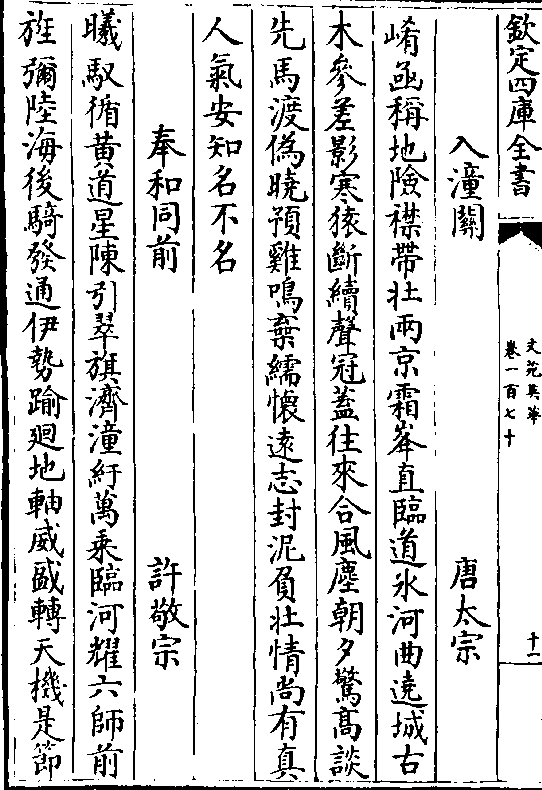 欽定四庫全書
文苑英華
卷一百七十
十一
入潼關 唐太宗
崤凾稱地險襟帶壮兩京霜峯直臨道氷河曲遶城古
木參差影寒猿斷續聲冠蓋往來合風塵朝夕驚髙談
先馬渡偽曉預雞鳴棄繻懷逺志封泥負壮情尚有真
人氣安知名不名
奉和同前 許敬宗
曦馭循黄道星陳引翠旗濟潼紆萬乗臨河耀六師前
旌彌陸海後騎發通伊勢踰廻地軸威盛轉天機是節